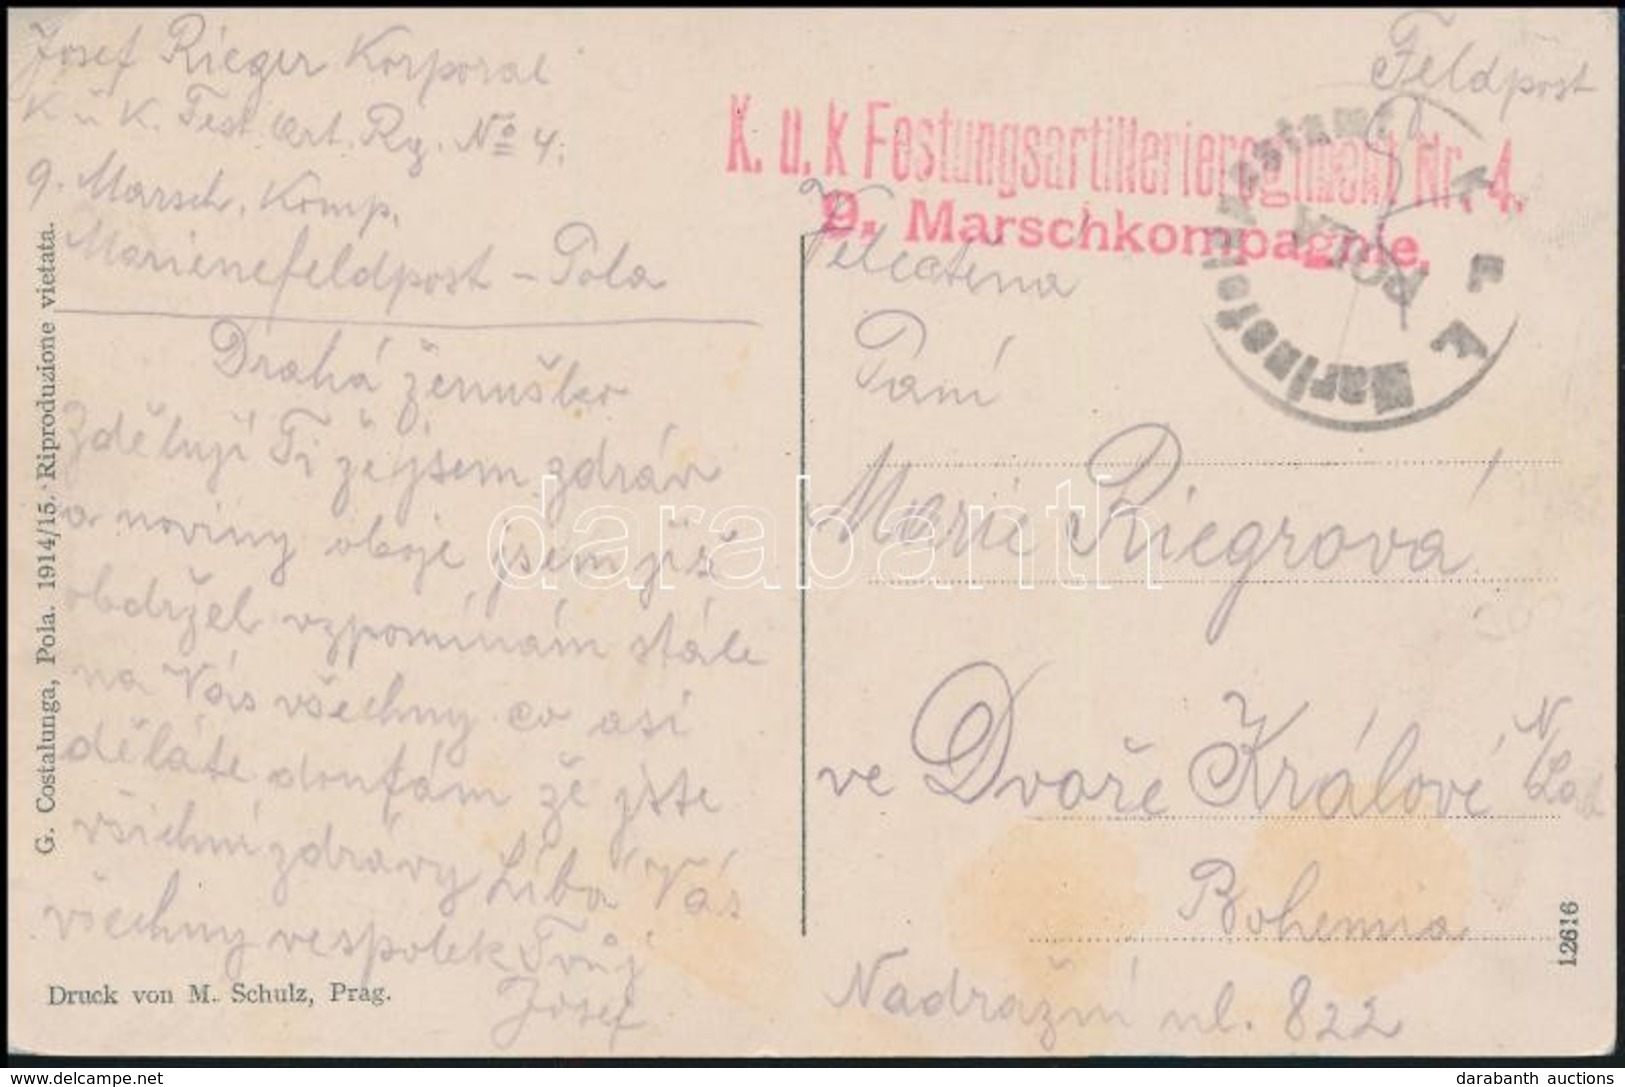 Josef Rieger Korporal
K u K. Fest. Art. Rg. No 4.
9. Marsch. Komp.
Marienefeldpost - Pola
Drahá ženuško
Zděluji Ti že jsem zdráv
a noviny oboje jsem již
obdržel vzpomínám stále
na Vás všechny co asi
děláte doufám že jste
všichni zdrávy Líbá Vás
všechny vespolek Tvůj
Josef
G. Costalunga, Pola. 1914/15. Riproduzione vietata.
Druck von M. Schulz, Prag.
Feldpost
K. u. k Festungsartillerieregiment Nr. 4.
9. Marschkompagnie.
POLA
Velectěna
Paní
Marie Riegrová
ve Dvoře Králové N/Lab
Bohemia
Nadražní ul. 822
12616
darabanth
darabanth auctions
delcampe.net